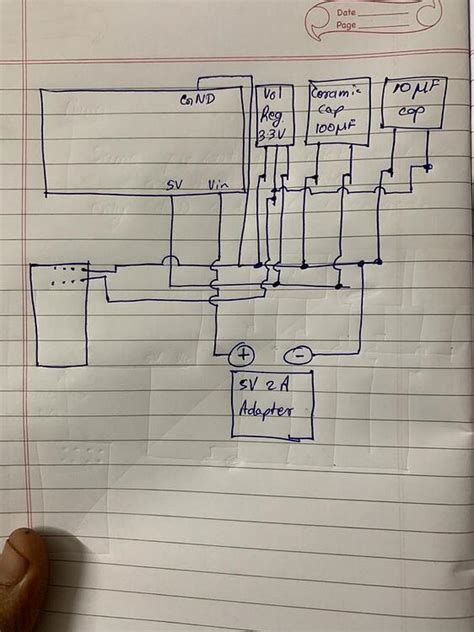 Date
Page
GND
Vol
Reg.
3.3V
Ceramic
Cap
100µF
10µF
cap
5V
Vin
+
-
5V 2A
Adapter